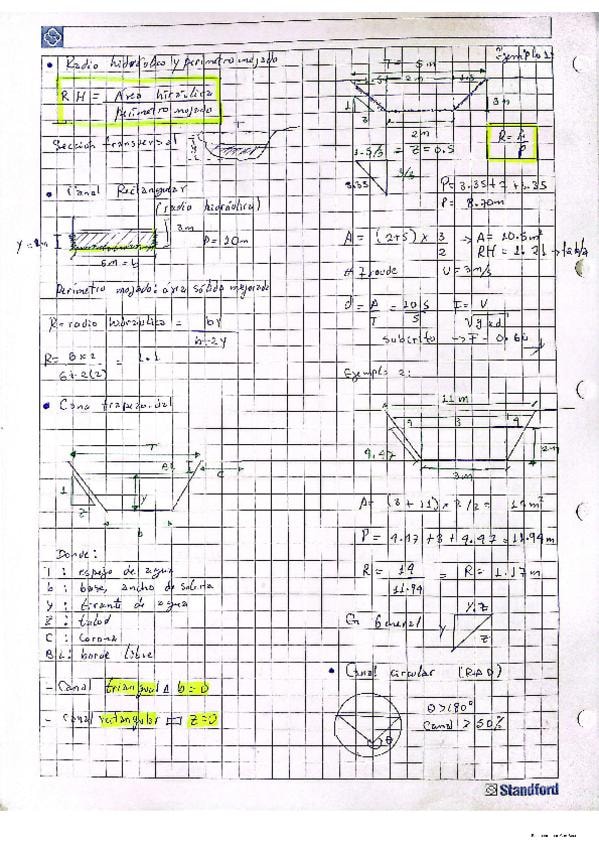 • Radio hidráulico y perímetro mojado
RH = Area hidráulica
Perímetro mojado
Sección transversal
T
y
• Canal Rectangular
(radio hidráulico)
3m
P = 10m
5m = b
Perímetro mojado: área sólida mojada
R = radio hidráulico = by
b+2y
R =
• Canal trapezoidal
T
BL
C
1
z
y
b
Donde:
T : espejo de agua
b : base, ancho de solera
y : tirante de agua
z : talud
C : corona
BL : borde libre
- Canal triangular b = 0
- Canal rectangular z = 0
Ejemplo 1:
T = 5m
1.5
2m
1.5
1
z
3m
2m
R = A
P
1.5/3 = z = 0.5
3.35
P = 3.35 + 2 + 3.35
P = 8.70m
A = (2+5) x 3
2
→ A = 10.5m²
RH = 1.21
# Froude
V = 3m/s
d = A
T
= 10.5
5
F = V
√g x d
Subcrítico → F = 0.66
Ejemplo 2:
11m
4
3
4
4.47
2m
3m
A = (3 + 11) x 2/2 = 14m²
P = 4.47 + 3 + 4.47 = 11.94m
R = 14
11.94
= R = 1.17m
En General
y
y.z
z
• Canal circular (RAD)
θ
θ > 180°
Canal > 50%
Standford